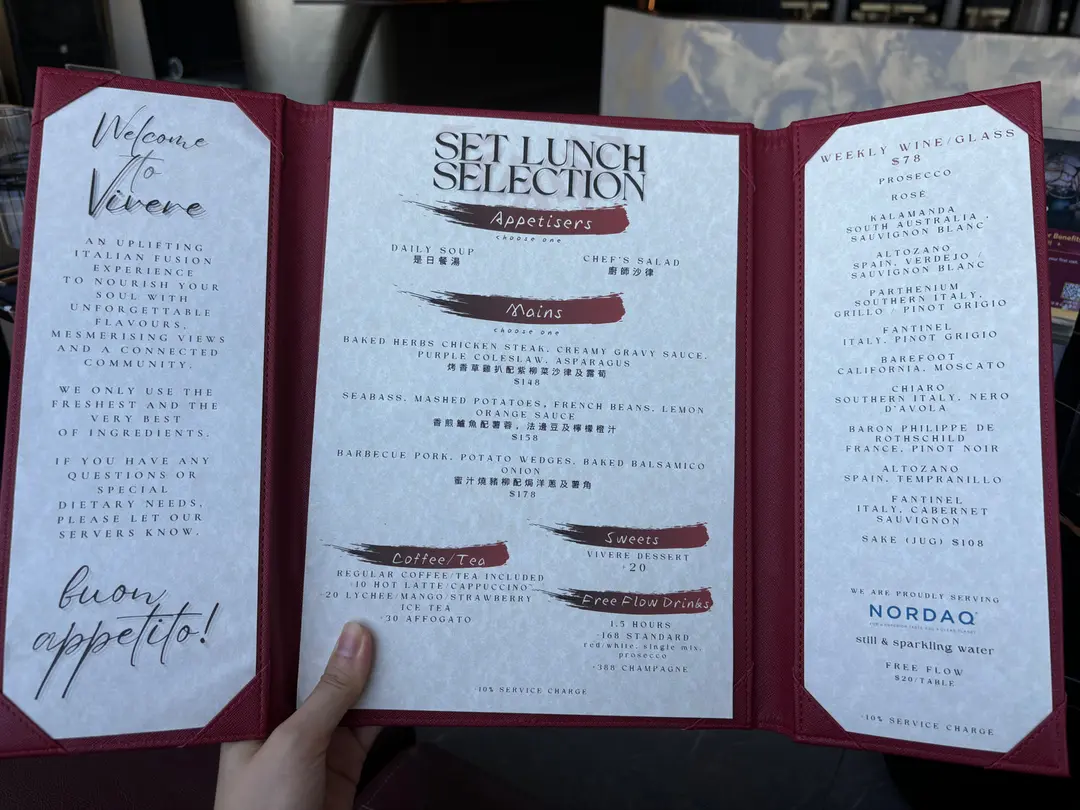 Welcome
to
Vivere
AN UPLIFTING
ITALIAN FUSION
EXPERIENCE
TO NOURISH YOUR
SOUL WITH
UNFORGETTABLE
FLAVOURS,
MESMERISING VIEWS
AND A CONNECTED
COMMUNITY.
WE ONLY USE THE
FRESHEST AND THE
VERY BEST
OF INGREDIENTS.
IF YOU HAVE ANY
QUESTIONS OR
SPECIAL
DIETARY NEEDS,
PLEASE LET OUR
SERVERS KNOW.
buon
appetito!
SET LUNCH
SELECTION
Appetisers
choose one
DAILY SOUP
是日餐湯
CHEF'S SALAD
廚師沙律
Mains
choose one
BAKED HERBS CHICKEN STEAK, CREAMY GRAVY SAUCE,
PURPLE COLESLAW, ASPARAGUS
烤香草雞扒配紫椰菜沙律及露筍
$148
SEABASS, MASHED POTATOES, FRENCH BEANS, LEMON
ORANGE SAUCE
香煎鱸魚配薯蓉, 法邊豆及檸檬橙汁
$158
BARBECUE PORK, POTATO WEDGES, BAKED BALSAMICO
ONION
蜜汁燒豬柳配焗洋蔥及薯角
$178
Coffee/Tea
REGULAR COFFEE/TEA INCLUDED
+10 HOT LATTE/CAPPUCCINO
+20 LYCHEE/MANGO/STRAWBERRY
ICE TEA
+30 AFFOGATO
Sweets
VIVERE DESSERT
+20
Free Flow Drinks
1.5 HOURS
+168 STANDARD
red/white, single mix,
prosecco
+388 CHAMPAGNE
+10% SERVICE CHARGE
WEEKLY WINE/GLASS
$78
PROSECCO
ROSÉ
KALAMANDA
SOUTH AUSTRALIA,
SAUVIGNON BLANC
ALTOZANO
SPAIN, VERDEJO /
SAUVIGNON BLANC
PARTHENIUM
SOUTHERN ITALY,
GRILLO / PINOT GRIGIO
FANTINEL
ITALY, PINOT GRIGIO
BAREFOOT
CALIFORNIA, MOSCATO
CHIARO
SOUTHERN ITALY, NERO
D'AVOLA
BARON PHILIPPE DE
ROTHSCHILD
FRANCE, PINOT NOIR
ALTOZANO
SPAIN, TEMPRANILLO
FANTINEL
ITALY, CABERNET
SAUVIGNON
SAKE (JUG) $108
WE ARE PROUDLY SERVING
NORDAQ
still & sparkling water
FREE FLOW
$20/TABLE
+10% SERVICE CHARGE